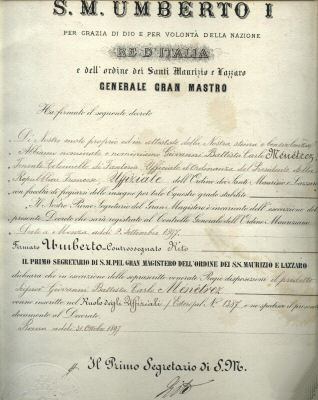 S. M. UMBERTO I
PER GRAZIA DI DIO E PER VOLONTÀ DELLA NAZIONE
RE D'ITALIA
e dell'ordine dei Santi Maurizio e Lazzaro
GENERALE GRAN MASTRO
Ha firmato il seguente decreto
Di Nostro motu proprio ed in attestato della Nostra stima e
Abbiamo nominato e nominiamo Giovanni Battista Carlo Menétrez
Tenente Colonnello di Fanteria Ufficiale d'Ordinanza del Presidente della
Repubblica Francese Uffiziale dell'Ordine dei Santi Maurizio e Lazzaro
con facoltà di fregiarsi delle insegne per tale Equestre grado stabilite
Il Nostro Primo Segretario del Gran Magistero è incaricato dell'esecuzione del
presente Decreto che sarà registrato al Controllo Generale dell'Ordine Mauriziano
Dato a Monza addì 9 Settembre 1897.
Firmato Umberto Controssegnato
IL PRIMO SEGRETARIO DI S.M. PEL GRAN MAGISTERO DELL'ORDINE DEI S.S. MAURIZIO E LAZZARO
dichiara che in esecuzione della sopra scritta Regia disposizione il predetto
Signor Giovanni Battista Carlo Menétrez
venne inscritto nel Ruolo degli Uffiziali (Esteri) al N° e ne spedisce il presente
documento al Decorato.
Roma addì 31 Ottobre 1897
Il Primo Segretario di S. M.